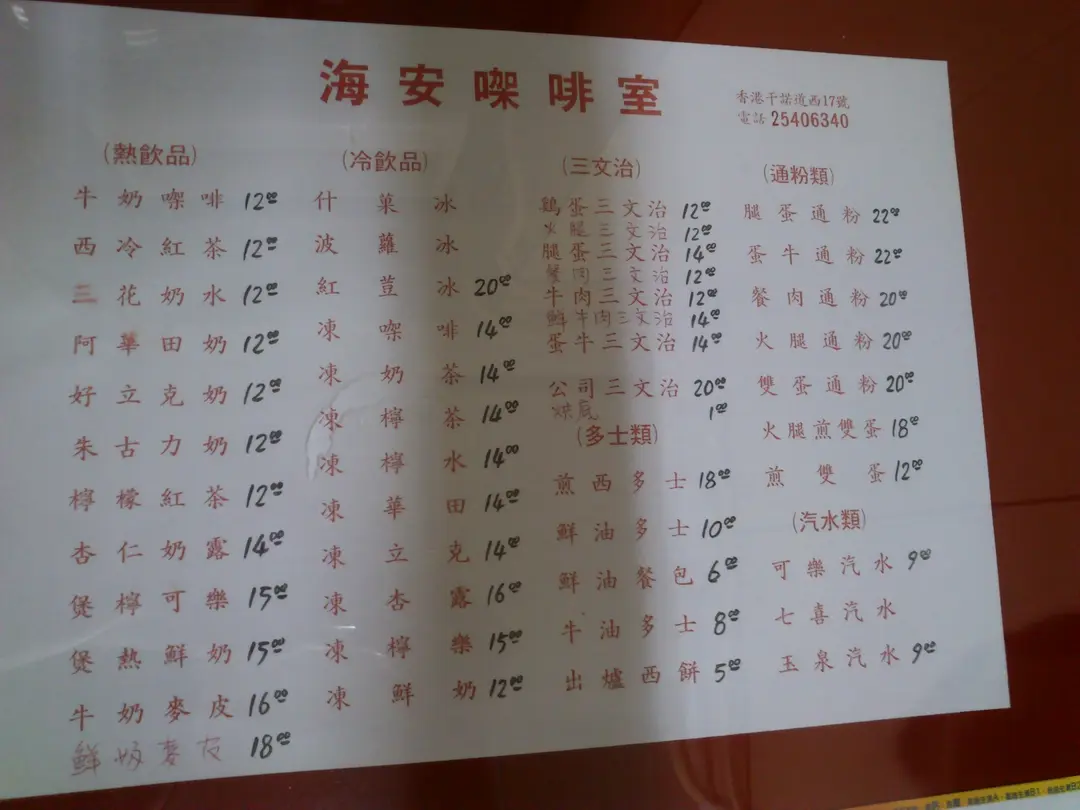 海安㗎啡室
香港干諾道西17號
電話 25406340
(熱飲品)
牛奶㗎啡 12.00
西冷紅茶 12.00
三花奶水 12.00
阿華田奶 12.00
好立克奶 12.00
朱古力奶 12.00
檸檬紅茶 12.00
杏仁奶露 14.00
煲檸可樂 15.00
煲熱鮮奶 15.00
牛奶麥皮 16.00
鮮奶麥皮 18.00
(冷飲品)
什菓冰
波蘿冰
紅荳冰 20.00
凍㗎啡 14.00
凍奶茶 14.00
凍檸茶 14.00
凍檸水 14.00
凍華田 14.00
凍立克 14.00
凍杏露 16.00
凍檸樂 15.00
凍鮮奶 12.00
(三文治)
鷄蛋三文治 12.00
火腿三文治 12.00
腿蛋三文治 14.00
餐肉三文治 12.00
牛肉三文治 12.00
鮮牛肉三文治 14.00
蛋牛三文治 14.00
公司三文治 20.00
烘底 1.00
(多士類)
煎西多士 18.00
鮮油多士 10.00
鮮油餐包 6.00
牛油多士 8.00
出爐西餅 5.00
(通粉類)
腿蛋通粉 22.00
蛋牛通粉 22.00
餐肉通粉 20.00
火腿通粉 20.00
雙蛋通粉 20.00
火腿煎雙蛋 18.00
煎雙蛋 12.00
(汽水類)
可樂汽水 9.00
七喜汽水
玉泉汽水 9.00